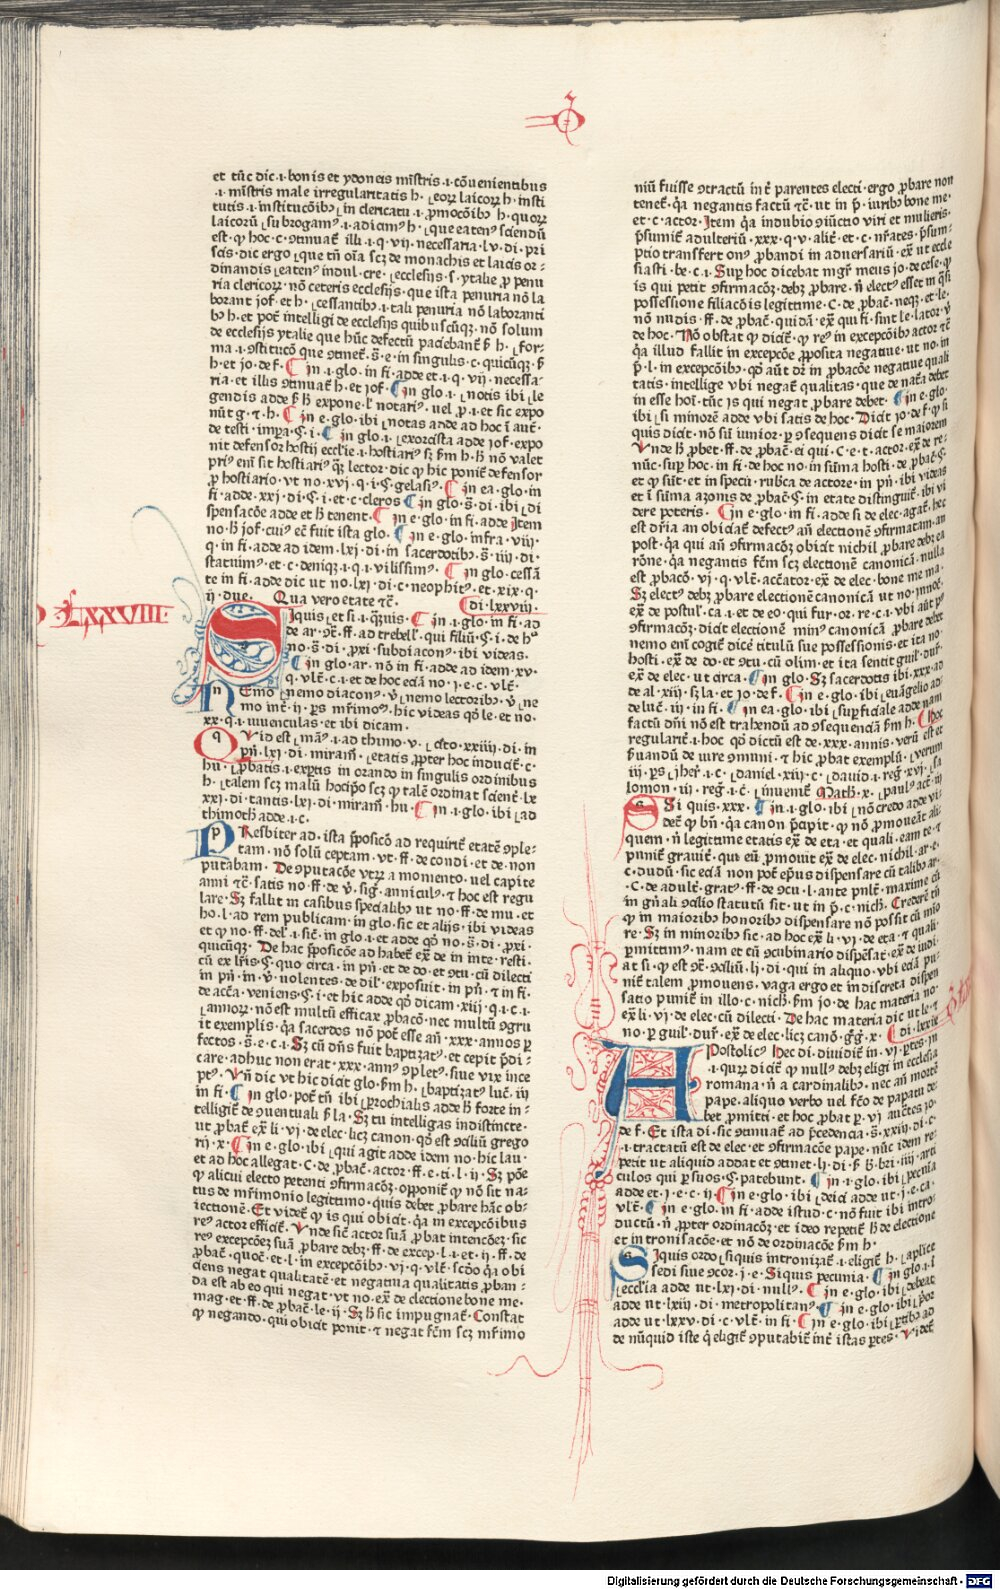 D
et tūc dic .i. bonis et ydoneis mīstris .i. cōuenientibus
.i. mīstris male irregularitatis h. ⸤eoꝝ laicoꝝ h. insti
tutis .i. institucōibꝫ ⸤in clericatu .i. ꝓmocōibꝫ h. quoꝝ
laicorū ⸤subrogamꝰ .i. adicimꝰ h. ⸤que eatenꝰ sciendū
est ꝙ hoc. c. ꝯtinuat̄ illi .i. q. vij. necessaria. lv. di. pri
scis. dic ergo ⸤que tn̄ oīa scꝫ de monachis et laicis or-
dinandis ⸤eatenꝰ indul. cre. ⸤ecclesijs. s. ytalie ꝓ penu
ria clericoꝝ. nō ceteris ecclesijs. que ista penuria nō la
borant jof. et h. ⸤cessantibꝫ .i. tali penuria nō laboranti
bꝫ h. et pot̄ intelligi de ecclesijs quibuscūqꝫ. nō solum
de ecclesijs ytalie que hūc defectū paciebant̄ ẜ h. ⸤for-
ma .i. ꝯstitucō que ꝯtinet̄. s̄. e. in singulis. c. quicūqꝫ. ẜ
h. et jo. de f. ¶ In .i. glo. in fi. adde et .i. q. vij. necessa-
ria. et illis ꝯtinuat̄ h. et jof. ¶ In glo .i. ⸤notis ibi ⸤le
gendis adde ẜ ẜ expone. l. notarijs. uel ꝓ .i. et sic expo
nūt g. ⁊ h. ¶ In e. glo. ibi ⸤notas adde ad hoc ī auct̄.
de testi. imꝑa. §. i. ¶ In glo .i. ⸤exorcista adde jof. expo
nit defensor hostij ecclīe .i. hostiariꝰ sꝫ ẜm h. ẜ nō valet
priꝰ enī sit hostiariꝰ qꝫ lector. dic ꝙ hic poniť defensor
ꝓ hostiario. vt no. xvj. q. i. §. gelasiꝰ. ¶ In ea. glo. in
fi. adde. xxj. di. §. i. et. c. cleros ¶ In glo. s̄. di. ibi ⸤di
spensacōe adde et ẜ tenent. ¶ In e. glo. in fi. adde Item
no. ẜ jof. cuiꝰ ec̄ fuit ista glo. ¶ In e. glo. infra. viij.
q. in fi. adde ad idem. lxj. di. in sacerdotibꝫ. s̄. iiij. di.
statuimꝰ. et. c. deniqꝫ .i. q. i. vilissimꝰ. ¶ In glo. cessā
te in fi. adde dic ut no. lxj. di. c. neophitꝰ. et. xix. q.
ij. due. Qua vero etate ⁊c̄. ¶ di. lxxviij.
D LXXVIII.
SIquis ⸤et si .i. qm̄uis. ¶ In .i. glo. in fi. ad
de ar. ꝯ̄. ff. ad trebell. qui filiū. §. i. de hꝰ
no. s̄. di. ꝓxi. subdiaconꝰ. ibi videas.
¶ In glo. ar. nō in fi. adde ad idem. xv.
q. vlt̄. c. i. et de hoc eciā no. j. e. c. vlt̄.
NEmo ⸤nemo diaconꝰ. v̇. ⸤nemo lectoribꝫ. v̇. ⸤ne
mo int̄. ij. ꝑs mr̄imoꝰ. hic videas qd̄ le. et no.
xx. q. i. iuuenculas. et ibi dicam.
QVid est ⸤māꝰ .i. ad thimo. v. ⸤cito. xxiij. di. in
pn̄. lxj. di. miramꝰ. ⸤etatis ꝓpter hoc inducit̄. c.
hu. ⸤ꝓbatis .i. expertis in orando in singulis ordinibus
h. ⸤talem scꝫ malū hocip̄o scꝫ ꝙ talē ordinat scient̄. lx
xxj. di. tantis. lxj. di. miramꝰ. hu. ¶ In .i. glo. ibi ⸤ad
thimoth̄ adde .i. c.
PResbiter ad. ista ꝓposicō ad requirit̄ etatē ꝯple-
tam. nō solū ceptam. vt. ff. de condi. et de. non
putabam. De ꝯputacōe vtꝝ a momento. uel capite
anni ⁊c̄. satis no. ff. de ꝟ. sig̃. anniculꝰ. ⁊ hoc est regu
lare. Sꝫ fallit in casibus specialibꝫ ut no. ff. de mu. et
ho. l. ad rem publicam. in glo. sic et alijs. ibi videas
et ꝙ no. ff. de ꝉ. a. sic̄. in glo .i. et adde qd̄ no. s̄. di. ꝓxi.
quicūqꝫ. De hac ꝓposicōe ad habet̄ ex̄. de in inte. resti.
cū ex lr̄is. §. quo circa. in pn̄. et de do. et ꝯtu. cū dilecti
in pn̄. in. v̇. uolentes. de dil. exposuit. in pn̄. ⁊ in fi.
de acc̄a. veniens. §. i. et hic adde qd̄ dicam. xiij. q. i. c. i.
⸤annoꝝ. nō est multū efficax ꝓbacō. nec multū ꝯgru
it exemplis. q̄a sacerdos nō pot̄ esse añ. xxx. annos ꝑ
fectos. s̄. e. c. i. Sꝫ cū dn̄s fuit baptizatꝰ. et cepit p̄di-
care. adhuc non erat. xxx. annꝰ ꝯpletꝰ. siue vix ince
ptꝰ. Vn̄ dic vt hic dicit glo. ẜm h. ⸤baptizatꝰ luc̄. iij
in fi. ¶ In glo. pot̄ tn̄ ibi ⸤ꝑochialis adde ẜ forte in-
telligit̄ de ꝯuentuali ẜ la. Sꝫ tu intelligas indistincte.
ut ꝓbat̄ ex̄. li. vj. de elec. licꝫ canon. qd̄ est ꝯciliū grego
rij. x. ¶ In e. glo. ibi ⸤qui agit adde idem no. hic lau.
et ad hoc allegat. c. de ꝓbac̄. actor. ff. e. ti. l. ij. Sꝫ pōe
ꝙ alicui electo petenti ꝯfirmacōꝫ. opponit̄ ꝙ nō sit na-
tus de mr̄imonio legittimo. quis debet ꝓbare hāc ob-
iectionē. Et videt̄ ꝙ is qui obicit. q̄a in excepcōibus
reꝰ actor efficit̄. Vnde sic̄ actor suā ꝓbat intencōeꝫ. sic
reꝰ excepcōeꝫ suā ꝓbare debꝫ. ff. de excep. l. i. et. ij. ff. de
ꝓbac̄. quoc̄. et. l. in excepcōibꝫ. vj. q. vlt̄. scd̄o q̄a obi
ciens negat qualitatē. et negatiua qualitatis ꝓban-
da est ab eo qui negat. vt no. ex̄. de electione bone me.
mag. et. ff. de ꝓbac̄. le. ij. Sꝫ ẜ sic impugnat̄. Constat
ꝙ negando. qui obicit ponit. ⁊ negat sc̄m scꝫ mr̄imo
niū fuisse ꝯtractū int̄ parentes electi. ergo ꝓbare non
tenet̄. q̄a negantis factū ⁊c̄. ut in ꝓ. iuribꝫ bone me.
et. c. actor. Item q̄a indubio ꝯiūctio viri et mulieris.
p̄sumit̄ adulteriū. xxx. q. v. alit̄. et. c. nr̄ates. p̄sum-
ptio transfert onꝰ ꝓbandi in aduersariū. ex̄. ut eccle
siasti. be. c. i. Suꝑ hoc dicebat mgr̄ meus jo. de cese. ꝙ
is qui petit ꝯfirmacōꝫ. debꝫ ꝓbare. n̄ electꝰ esset in q̄si
possessione filiacōis legitime. C. de ꝓbac̄. neqꝫ. et. le.
nō nudis. ff. de ꝓbac̄. quidā. ex̄. qui fi. sint le. lator. v̇
de hoc. Nō obstat ꝙ dicit̄. ꝙ reꝰ in excepcōibꝫ actor ⁊c̄
q̄a illud fallit in excepcōe ꝓposita negatiue. ut no. in
p̄. l. in excepcōibꝫ. qd̄ aūt dr̄ in ꝓbacōe negatiue quali
tatis. intellige vbi negat̄ qualitas. que de nat̄a debet
in esse hoī. tūc is qui negat ꝓbare debet. ¶ In e. glo.
ibi ⸤si minorē adde vbi satis de hoc. Dicit jo. de f. ꝙ si
quis dicit. nō sū iunior. ꝑ ꝯsequens dicit se maiorem
Vnde ẜ ꝓbet. ff. de ꝓbac̄. ei qui. C. e. t. actor. ex̄. de re-
nūc. suꝑ hoc. in fi. de hoc no. in sūma hosti. de ꝓbac̄. §.
et ꝙ sūt. et in specu. rubca de actore. in pn̄. ibi videas
et ī sūma azonis de ꝓbac̄. §. in etate distinguit̄. ibi vi
dere poteris. ¶ In e. glo. in fi. adde si de elec. agat̄. hec
est dr̄ia an obiciat̄ defectꝰ an̄ electionē ꝯfirmatam. an
post. q̄a qui an̄ ꝯfirmacōꝫ obicit nichil ꝓbare debꝫ ea
rōne. q̄a negantis sc̄m scꝫ electionē canonicā. nulla
est ꝓbacō. vj. q. vlt̄. acc̄ator. ex̄. de elec. bone me ma.
Sꝫ electꝰ debꝫ ꝓbare electionē canonicā ut no. īnnoc̄.
ex̄. de postul. ca. i. et de eo. qui fur. or. re. c. i. vbi aūt pꝰ
ꝯfirmacōꝫ. dicit electionē minꝰ canonicā ꝓbare debet
nemo enī cogit̄ dice titulū sue possessionis. et ita no.
hosti. ex̄. de do. et ꝯtu. cū olim. et ita sentit guil. dur̄.
ex̄. de elec. ut circa. ¶ In glo. Sꝫ sacerdotis ibi. xxx. ad
de al. xiij. sꝫ la. et jo. de f. ¶ In e. glo. ibi ⸤euāgelio ad
de luc̄. iij. in fi. ¶ In ea. glo. ibi ⸤suꝑficiale adde nam
factū dn̄i nō est trahendū ad ꝯsequenciā ẜm h. ¶ hoc
regularit̄ .i. hoc qd̄ dictū est de. xxx. annis. verū est et
ẜuandū de iure ꝯmuni. ⁊ hic ꝓbat exemplū. ⸤verum
iij. ꝑs ⸤hier̄ .i. c. ⸤daniel. xiij. c. ⸤dauid .i. reg̃. xvj. ⸤sa
lomon. iij. reg̃ .i. c̄. ⸤inuenit̄ Math̄. x. ⸤paulꝰ act̄. iij
SSi quis. xxx. ¶ In .i. glo. ibi ⸤nō credo adde vi
det̄ ꝙ bn̄. q̄a canon p̄cipit. ꝙ nō ꝓmoueāt ali
quem. n̄ legittime etatis ex̄. de eta. et quali. eam te. ⁊
punit̄ grauit̄. qui eū ꝓmouit ex̄. de elec. nichil. ar. e.
c. dudū. sic eciā non pot̄ ep̄us dispensare cū talibꝫ ar.
C. de adult̄. gratꝰ. ff. de ꝯcu. l. ante pn̄lt̄. maxime cū
in gn̄ali ꝯcilio statutū sit. ut in ꝓ. c. nich̄. Crederē tn̄
ꝙ in maioribꝫ honoribꝫ dispensare nō possit cū mīo
re. Sꝫ in minoribꝫ sic. ad hoc ex̄. li. vj. de eta. ⁊ quali.
ꝑmittimꝰ. nam et cū ꝯcubinario dispēsat. ex̄. de iudi.
at si. ꝙ est ꝯ̄. ꝯciliū. lj. di. qui in aliquo. vbi eciā pu-
nit̄ talem ꝓmouens. vaga ergo et indiscreta dispen
satio punit̄ in illo. c. nich̄. ẜm jo. de hac materia no.
ex̄. li. vj. de elec. cū dilecti. De hac materia dic ut le. ⁊
no. ꝑ guil. dur̄. ex̄. de elec. licꝫ canō. g̃g̃. x. ¶ di. lxxix
APostolicꝰ hec di. diuidit̄ in. vj. ꝑtes. in
.i. quꝝ dicit̄ ꝙ nullꝰ debꝫ eligi in ecclesia
romana. n̄ a cardinalibꝫ. nec an̄ mortē
pape. aliquo verbo uel sc̄o de papatu de
bet ꝓmitti. et hoc ꝓbat ꝑ. vj auctes jo.
de f. Et ista di. sic ꝯtinuat̄ ad p̄cedencia. s̄. xxiij. di. c.
.i. tractatū est de elec. et ꝯfirmacōe pape. nūc idem re-
petit ut aliquid addat et ꝯtinet. h. di. ẜ ẜ. bzi. iiij. arti
culos qui ꝑ suos. §. patebunt. ¶ In .i. glo. ibi ⸤pecnia
adde et. j. e. c. ij. ¶ In e. glo. ibi ⸤deici adde ut. j. e. ca.
vlt̄. ¶ In e. glo. in fi. adde istud. c. nō fuit ibi intro-
ductū. n̄ ꝓpter ordinacōꝫ. et ideo repetit̄ ẜ de electione
et intronisacōe. et nō de ordinacōe ẜm h.
SIquis ordo ⸤siquis intronizat̄ .i. eligit̄ h. ⸤aplice
sedi siue ꝯcor. j. e. Siquis pecunia. ¶ In glo .i. ī
⸤eccl̄ia adde ut. lxj. di. nullꝰ. ¶ In e. glo. ibi ⸤debeat
adde ut. lxiij. di. metropolitanꝰ. ¶ In e. glo. ibi ⸤p̄or
adde ut. lxxv. di. c. vlt̄. in fi. ¶ In e. glo. ibi ⸤ꝑtibꝫ ad
de nūquid iste q̇ eligit̄ ꝯputabit̄ int̄ istas ꝑtes. Videt̄
Digitalisierung gefördert durch die Deutsche Forschungsgemeinschaft - DFG